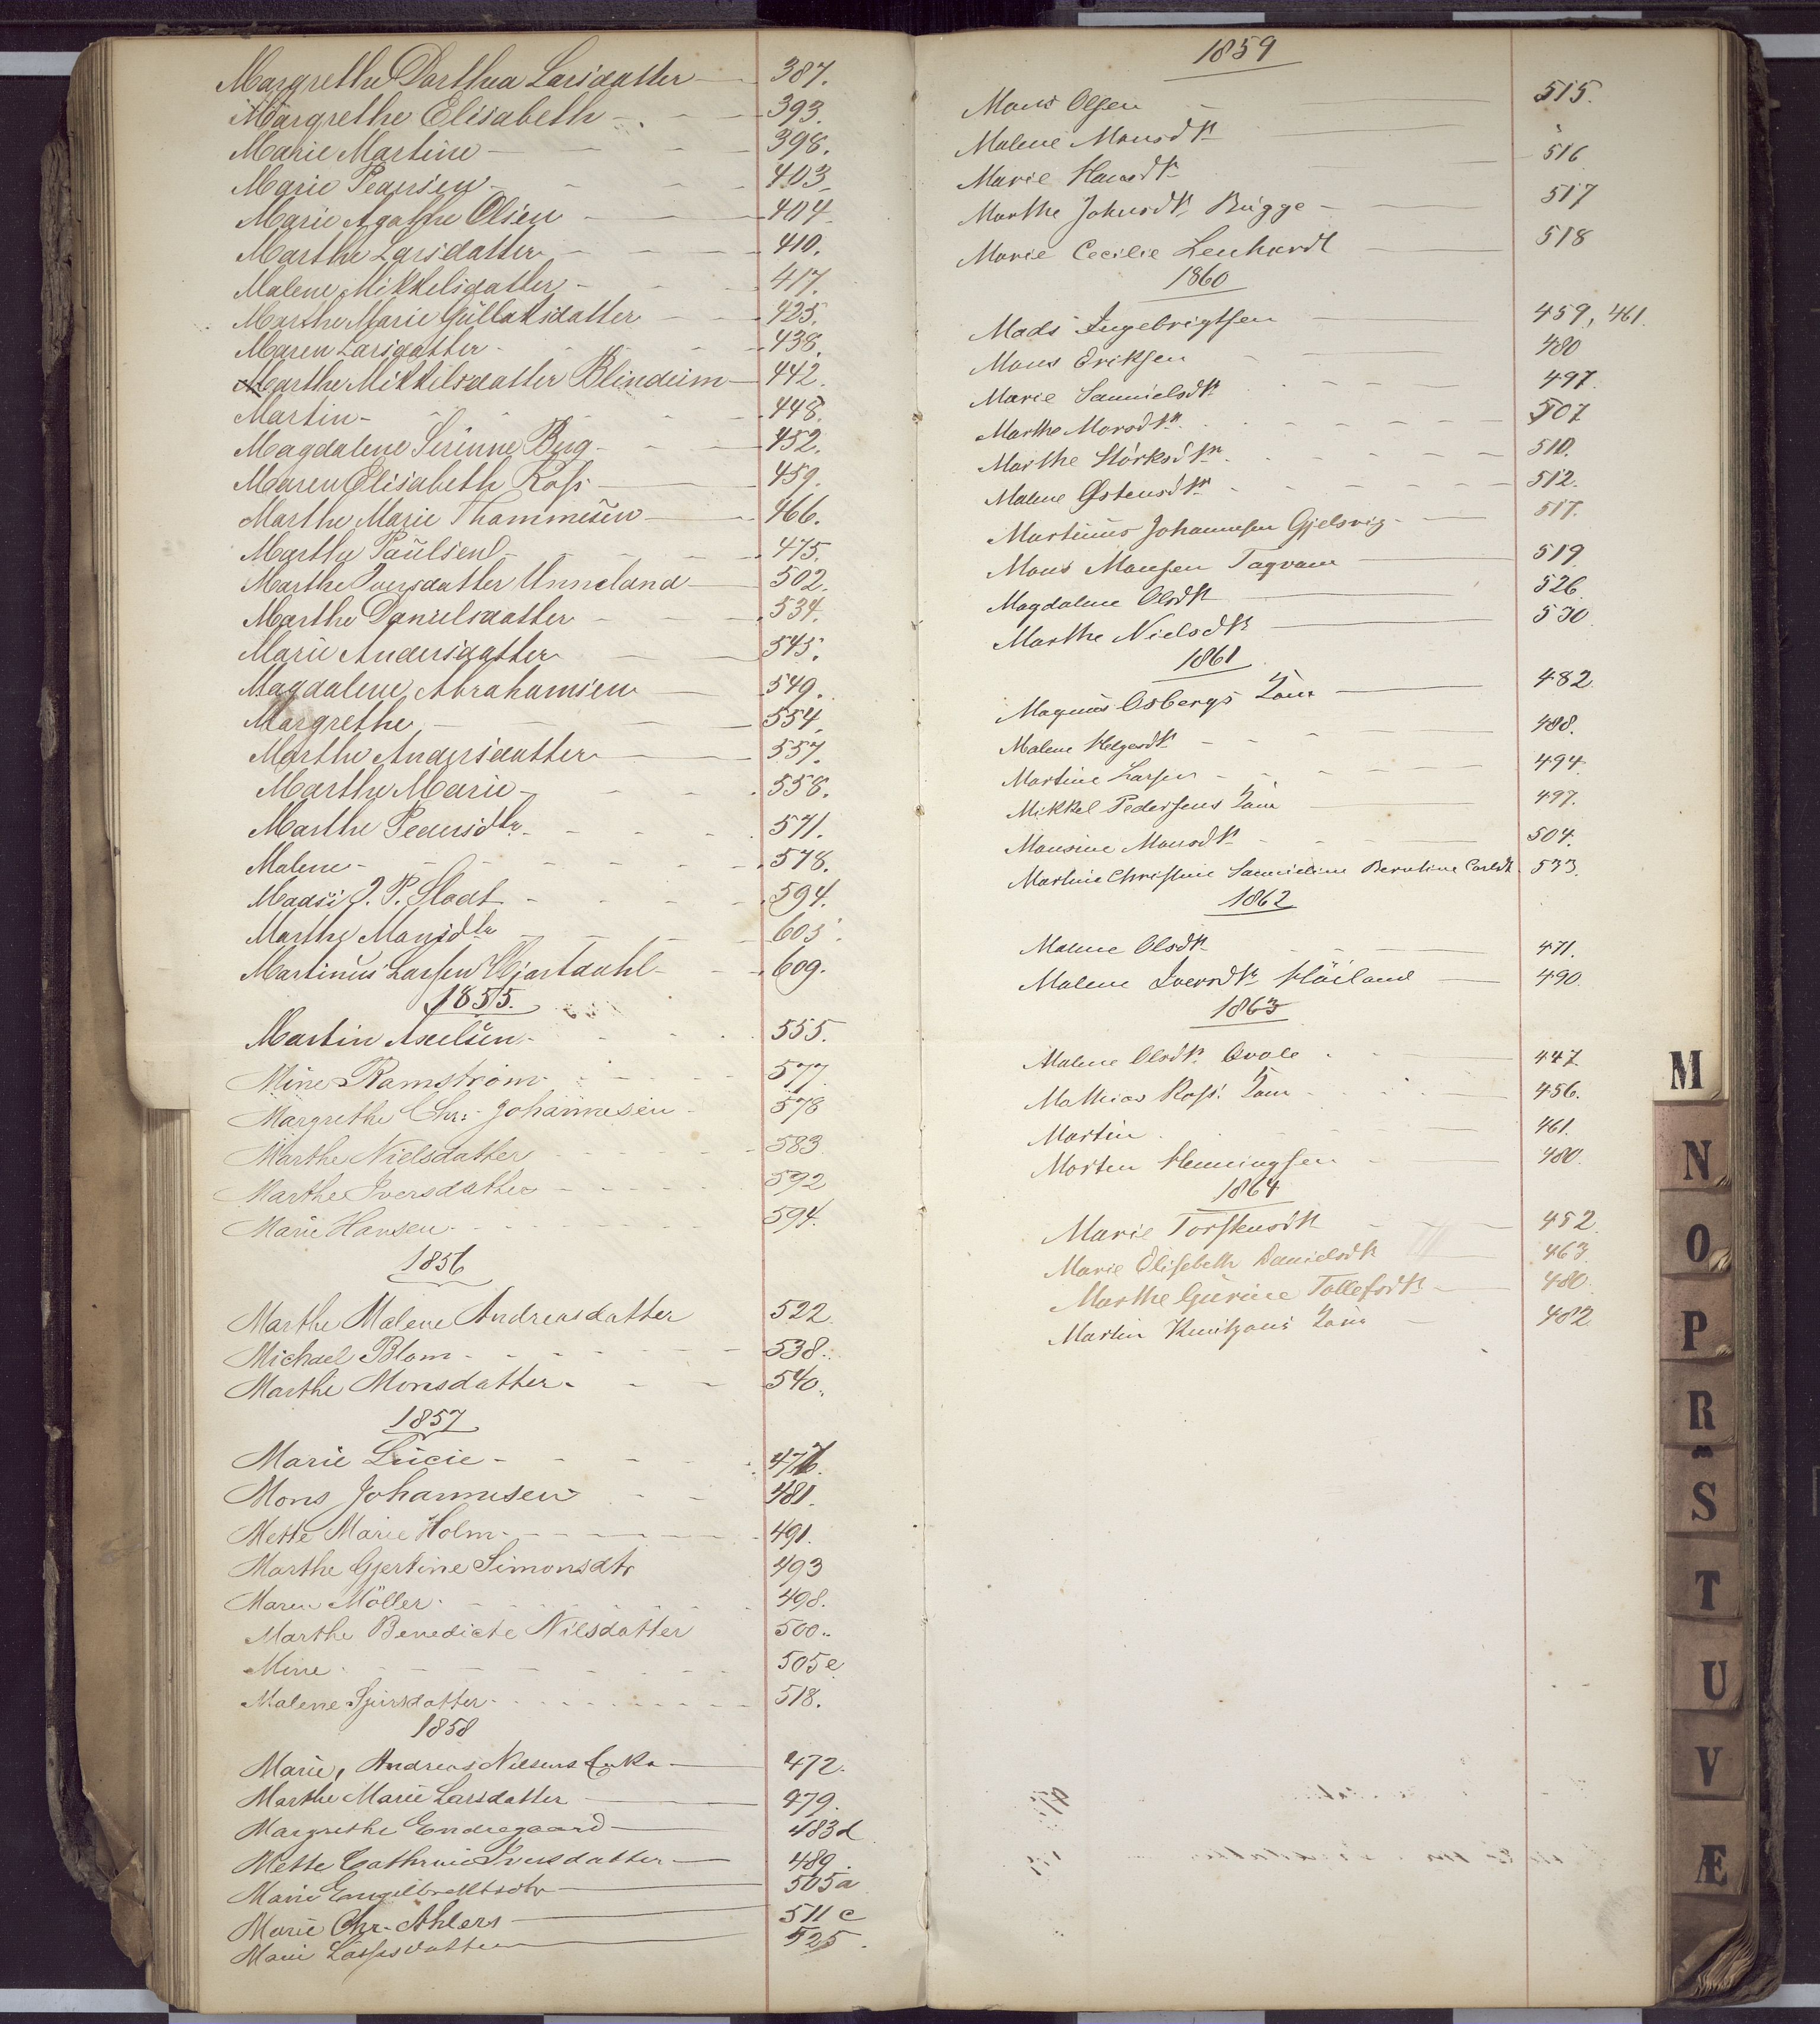 Margrethe Dorthea Larsdatter 387.
Margrethe Elisabeth 393.
Marie Martine 398.
Marie Pedersen 403
Marie Agathe Olsen 404
Marthe Larsdatter 410.
Malene Mikkelsdatter 417.
Marthe Marie Gullaksdatter 425.
Maren Larsdatter 438.
Marthe Mikkelsdatter Blindeim 442.
Martin 448.
Magdalene Serinne Berg 452.
Maren Elisabeth Ross 459.
Marthe Marie Thommesen 466.
Marthe Paulsen 475.
Marthe Iversdatter Unneland 502.
Marthe Danielsdatter 534.
Marie Andersdatter 545.
Magdalene Abrahamsen 549.
Margrethe 554.
Marthe Andersdatter 557.
Marthe Marie 558.
Marthe Pedersdtr 571.
Malene 578.
Madsi J. P. Stadt 594.
Marthe Monsdtr 603.
Martinus Larsen Hjortdahl 609.
1855.
Martin Axelsen 555.
Mine Ramstrøm 577
Margrethe Chr. Johannesen 578
Marthe Nielsdatter 583
Marthe Iversdatter 592
Marie Hansen 594.
1856
Marthe Malene Andreasdatter 522.
Michael Blom 538.
Marthe Monsdatter 540.
1857
Marie Lucie 476.
Mons Johannesen 481.
Mette Marie Holm 491.
Marthe Gjertine Simonsdtr 493
Maren Möller 498.
Marthe Benedicte Nilsdatter 500.
Mine 505e
Malene Sjursdatter 518.
1858
Marie, Andreas Nilsens Enke 472.
Marthe Marie Larsdatter 479.
Margrethe Endregaard 483d
Mette Cathrine Iversdatter 489.
Marie Engelbrektsdtr 505a
Marie Chr. Ahlers 511c
Marie Lassesdatter 525.
1859
Mons Olsen 515.
Malene Monsdtr
Marie Hansdtr 516
Marthe Johnsdtr Bugge 517
Marie Cecilie Lenhardt 518
1860
Mads Ingebrigtsen 459, 461.
Mons Eriksen 480
Marie Samuelsdtr 497.
Marthe Monsdtr 507
Marthe Størksdtr 510.
Malene Østensdtr 512.
Martinus Johannesen Gjelsvig 517.
Mons Monsen Taqvam 519
Magdalene Olsdtr 526
Marthe Nielsdtr 530
1861
Magnus Osbergs 482.
Malene Helgesdtr 488.
Martine Larsen 494.
Mikkel Pedersens 497.
Monsine Monsdtr 504.
Martine Christine Samueline Berntine Carlsdtr 533.
1862
Malene Olsdtr 471.
Malene Iversdtr Höiland 490.
1863
Malene Olsdtr Qvale 447.
Mathias Ross' 456.
Martin 461.
Morten Henningsen 480.
1864
Marie Torstensdtr 452.
Marie Elisabeth Danielsdtr 463
Marthe Gurine Tollefsdtr 480.
Martin 482.
M
N
O
P
R
S
T
U
V
Æ